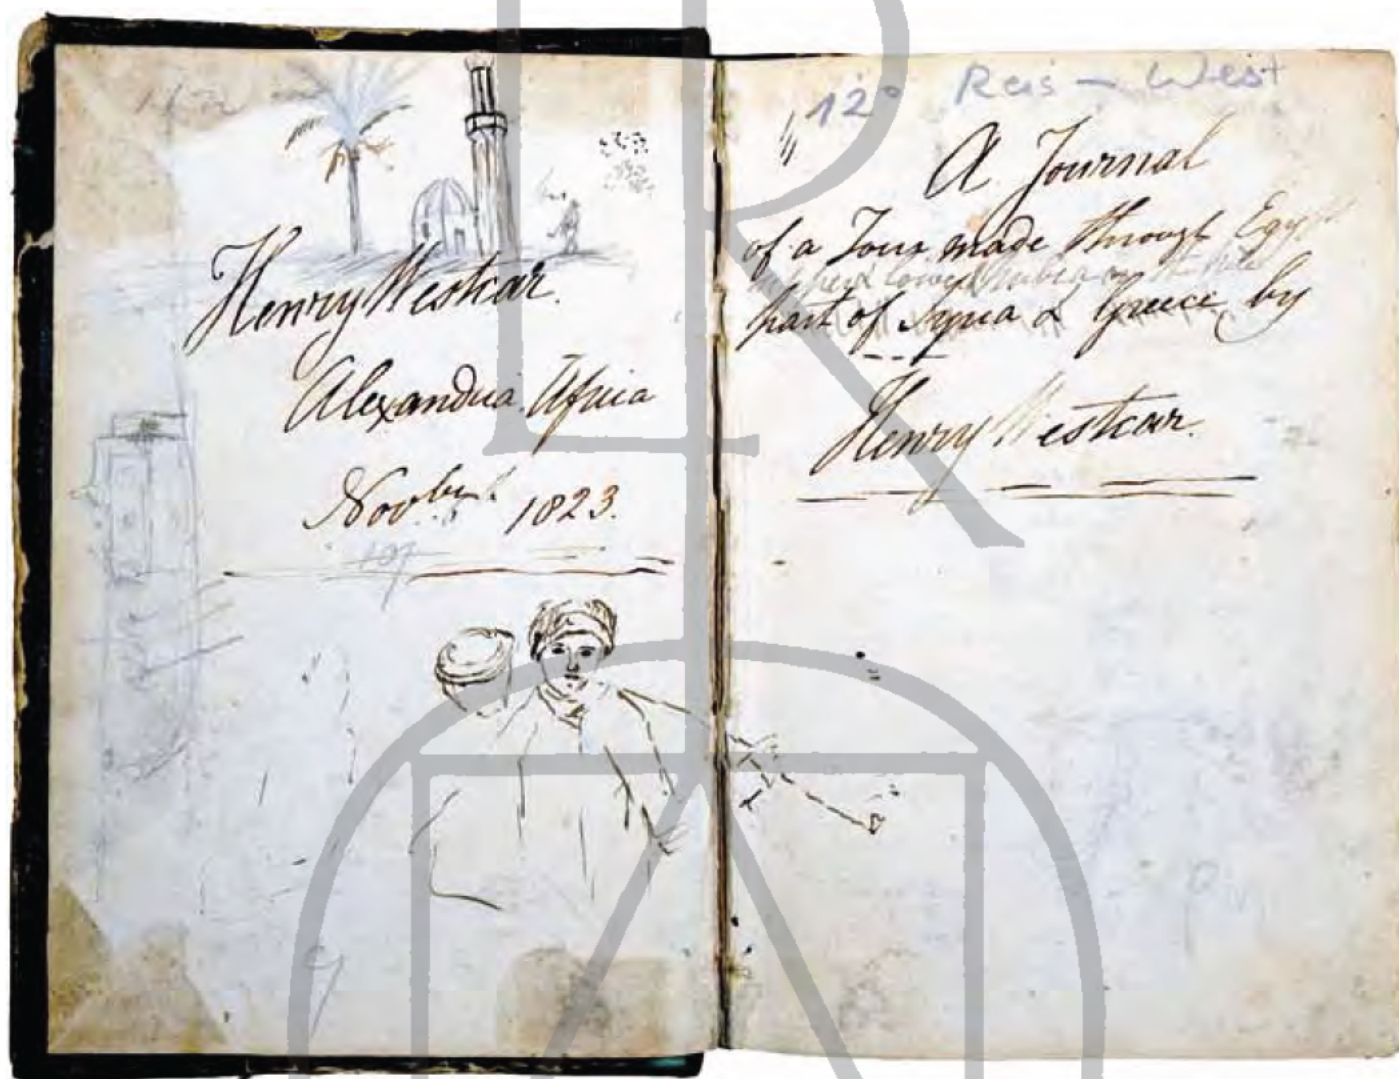 Henry Westcar.
Alexandria. Africa
Novber 1823.
107
12° Reis – West
A Journal
of a Tour made through Egypt
lower Nubia
part of Syria & Greece, by
Henry Westcar.